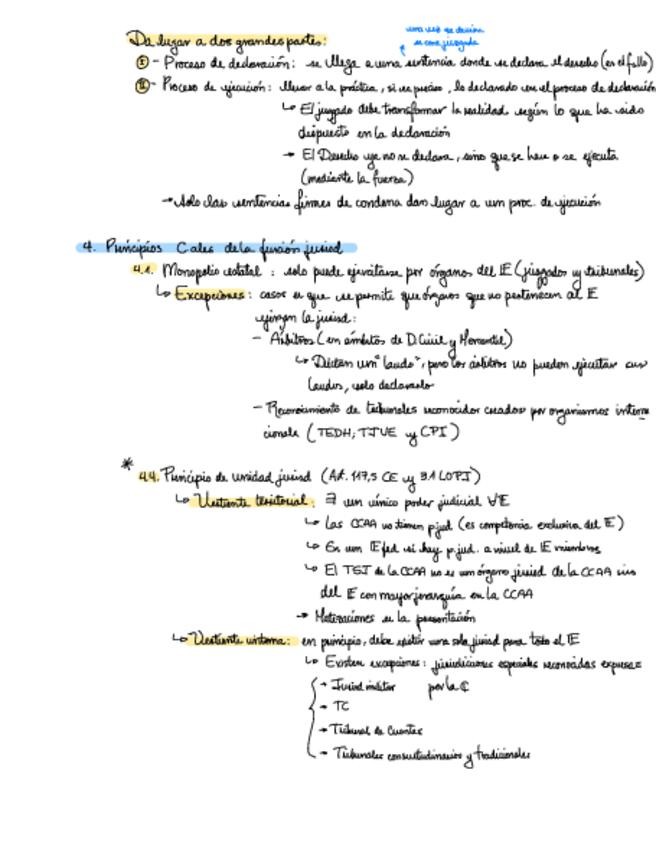 una vez deviene
en cosa juzgada
Da lugar a dos grandes partes:
I - Proceso de declaración: se llega a una sentencia donde se declara el derecho (en el fallo)
II - Proceso de ejecución: llevar a la práctica, si es preciso, lo declarado en el proceso de declaración
↳ El juzgado debe transformar la realidad según lo que ha sido
dispuesto en la declaración
→ El Derecho ya no se declara, sino que se hace o se ejecuta
(mediante la fuerza)
→ Solo las sentencias firmes de condena dan lugar a un proc. de ejecución
4. Principios Cales de la función jurisd
4.1. Monopolio estatal: solo puede ejercitarse por órganos del E (juzgados y tribunales)
↳ Excepciones: casos en que se permite que órganos que no pertenecen al E
ejerzan la jurisd:
- Árbitros (en ámbitos de D.Civil y Mercantil)
↳ Dictan un "laudo", pero los árbitros no pueden ejecutar sus
laudos, solo declararlo
- Reconocimiento de tribunales reconocidos creados por organismos interna
cionales (TEDH, TJUE y CPI)
*
4.4. Principio de unidad jurisd (Art. 117,5 CE y 3.1 LOPJ)
↳ Vertiente territorial: ∃ un único poder judicial ∀E
↳ Las CCAA no tienen p.jud (es competencia exclusiva del E)
↳ En un E fed si hay p.jud. a nivel de E miembros
↳ El TSJ de la CCAA no es un órgano jurisd de la CCAA sino
del E con mayor jerarquía en la CCAA
→ Matizaciones en la presentación
↳ Vertiente interna: en principio, debe existir una sola jurisd para todo el E
↳ Existen excepciones: jurisdicciones especiales reconocidas
→ Jurisd militar por la C
→ TC
→ Tribunal de Cuentas
→ Tribunales consuetudinarios y tradicionales